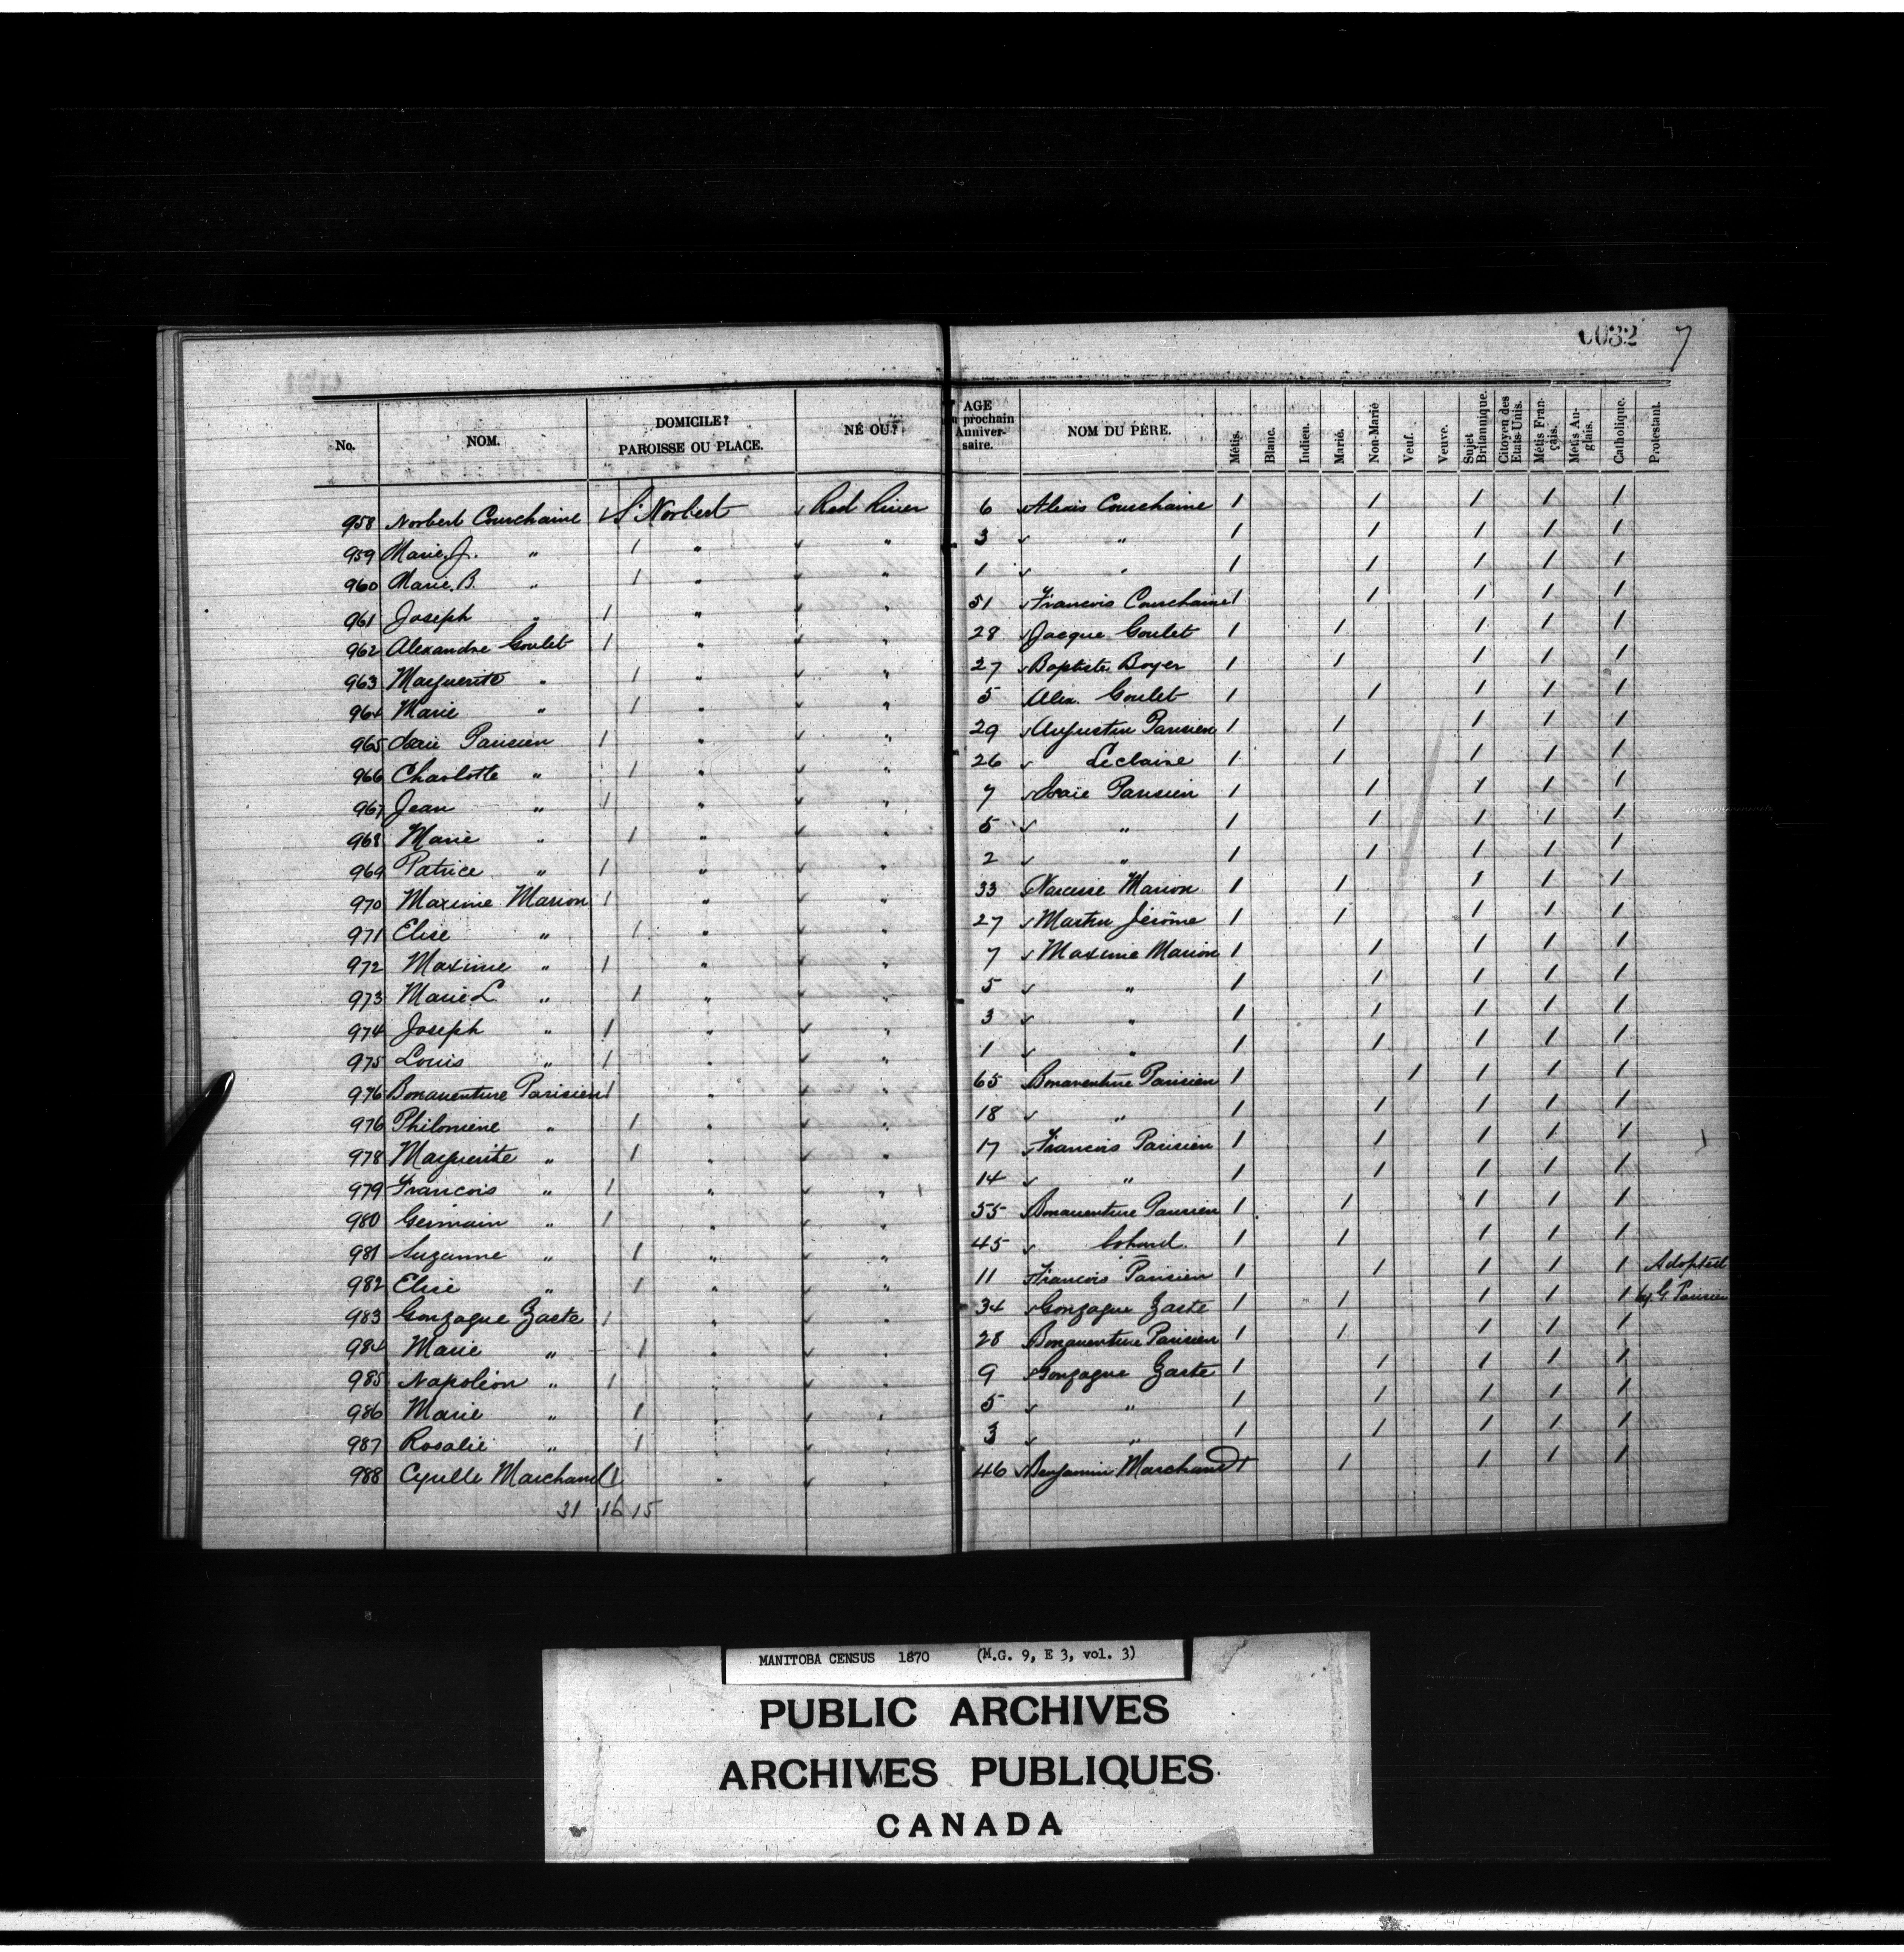 0032 7
No. NOM. DOMICILE? PAROISSE OU PLACE. NÉ OU? AGE prochain Anniver-saire. NOM DU PÈRE. Métis. Blanc. Indien. Marié. Non-Marié Veuf. Veuve. Sujet Britannique. Citoyen des Etats-Unis. Métis Fran-çais. Métis An-glais. Catholique. Protestant.
958 Norbert Courchaine 1 St Norbert ✓ Red River 6 ✓ Alexis Courchaine 1 1 1 1 1
959 Marie J. " 1 " ✓ " 3 ✓ " 1 1 1 1 1
960 Marie B. " 1 " ✓ " 1 ✓ " 1 1 1 1 1
961 Joseph " 1 " ✓ " 51 ✓ Francois Courchaine 1 1 1 1 1
962 Alexandre Goulet 1 " ✓ " 28 ✓ Jacque Goulet 1 1 1 1 1
963 Marguerite " 1 " ✓ " 27 ✓ Baptiste Boyer 1 1 1 1 1
964 Marie " 1 " ✓ " 5 Alex. Goulet 1 1 1 1 1
965 Isaie Parisien 1 " ✓ " 29 ✓ Augustin Parisien 1 1 1 1 1
966 Charlotte " 1 " ✓ " 26 ✓ Leclaire 1 1 1 1 1
967 Jean " 1 " ✓ " 7 ✓ Isaïe Parisien 1 1 1 1 1
968 Marie " 1 " ✓ " 5 ✓ " 1 1 1 1 1
969 Patrice " 1 " ✓ " 2 ✓ " 1 1 1 1 1
970 Maxime Marion 1 " ✓ " 33 Narcisse Marion 1 1 1 1 1
971 Elise " 1 " ✓ " 27 ✓ Martin Jérôme 1 1 1 1 1
972 Maxime " 1 " ✓ " 7 ✓ Maxime Marion 1 1 1 1 1
973 Marie L. " 1 " ✓ " 5 ✓ " 1 1 1 1 1
974 Joseph " 1 " ✓ " 3 ✓ " 1 1 1 1 1
975 Louis " 1 " ✓ " 1 ✓ " 1 1 1 1 1
976 Bonaventure Parisien 1 " ✓ " 65 Bonaventure Parisien 1 1 1 1 1
976 Philomene " 1 " ✓ " 18 ✓ " 1 1 1 1 1
978 Marguerite " 1 " ✓ " 17 ✓ Francois Parisien 1 1 1 1 1
979 Francois " 1 " ✓ " 14 ✓ " 1 1 1 1 1
980 Germain " 1 " ✓ " 55 Bonaventure Parisien 1 1 1 1 1
981 Suzanne " 1 " ✓ " 45 ✓ 1 1 1 1 1
982 Elise " 1 " ✓ " 11 Francois Parisien 1 1 1 1 1 Adopted
983 Gonzague Zaste 1 " ✓ " 34 ✓ Gonzague Zaste 1 1 1 1 1 by G. Parisien
984 Marie " 1 " ✓ " 28 Bonaventure Parisien 1 1 1 1 1
985 Napoléon " 1 " ✓ " 9 ✓ Gonzague Zaste 1 1 1 1 1
986 Marie " 1 " ✓ " 5 ✓ " 1 1 1 1 1
987 Rosalie " 1 " ✓ " 3 ✓ " 1 1 1 1 1
988 Cyrille Marchand 1 " ✓ " 46 ✓ Benjamin Marchand 1 1 1 1 1
31 16 15
MANITOBA CENSUS 1870 (M.G. 9, E 3, vol. 3)
PUBLIC ARCHIVES
ARCHIVES PUBLIQUES
CANADA